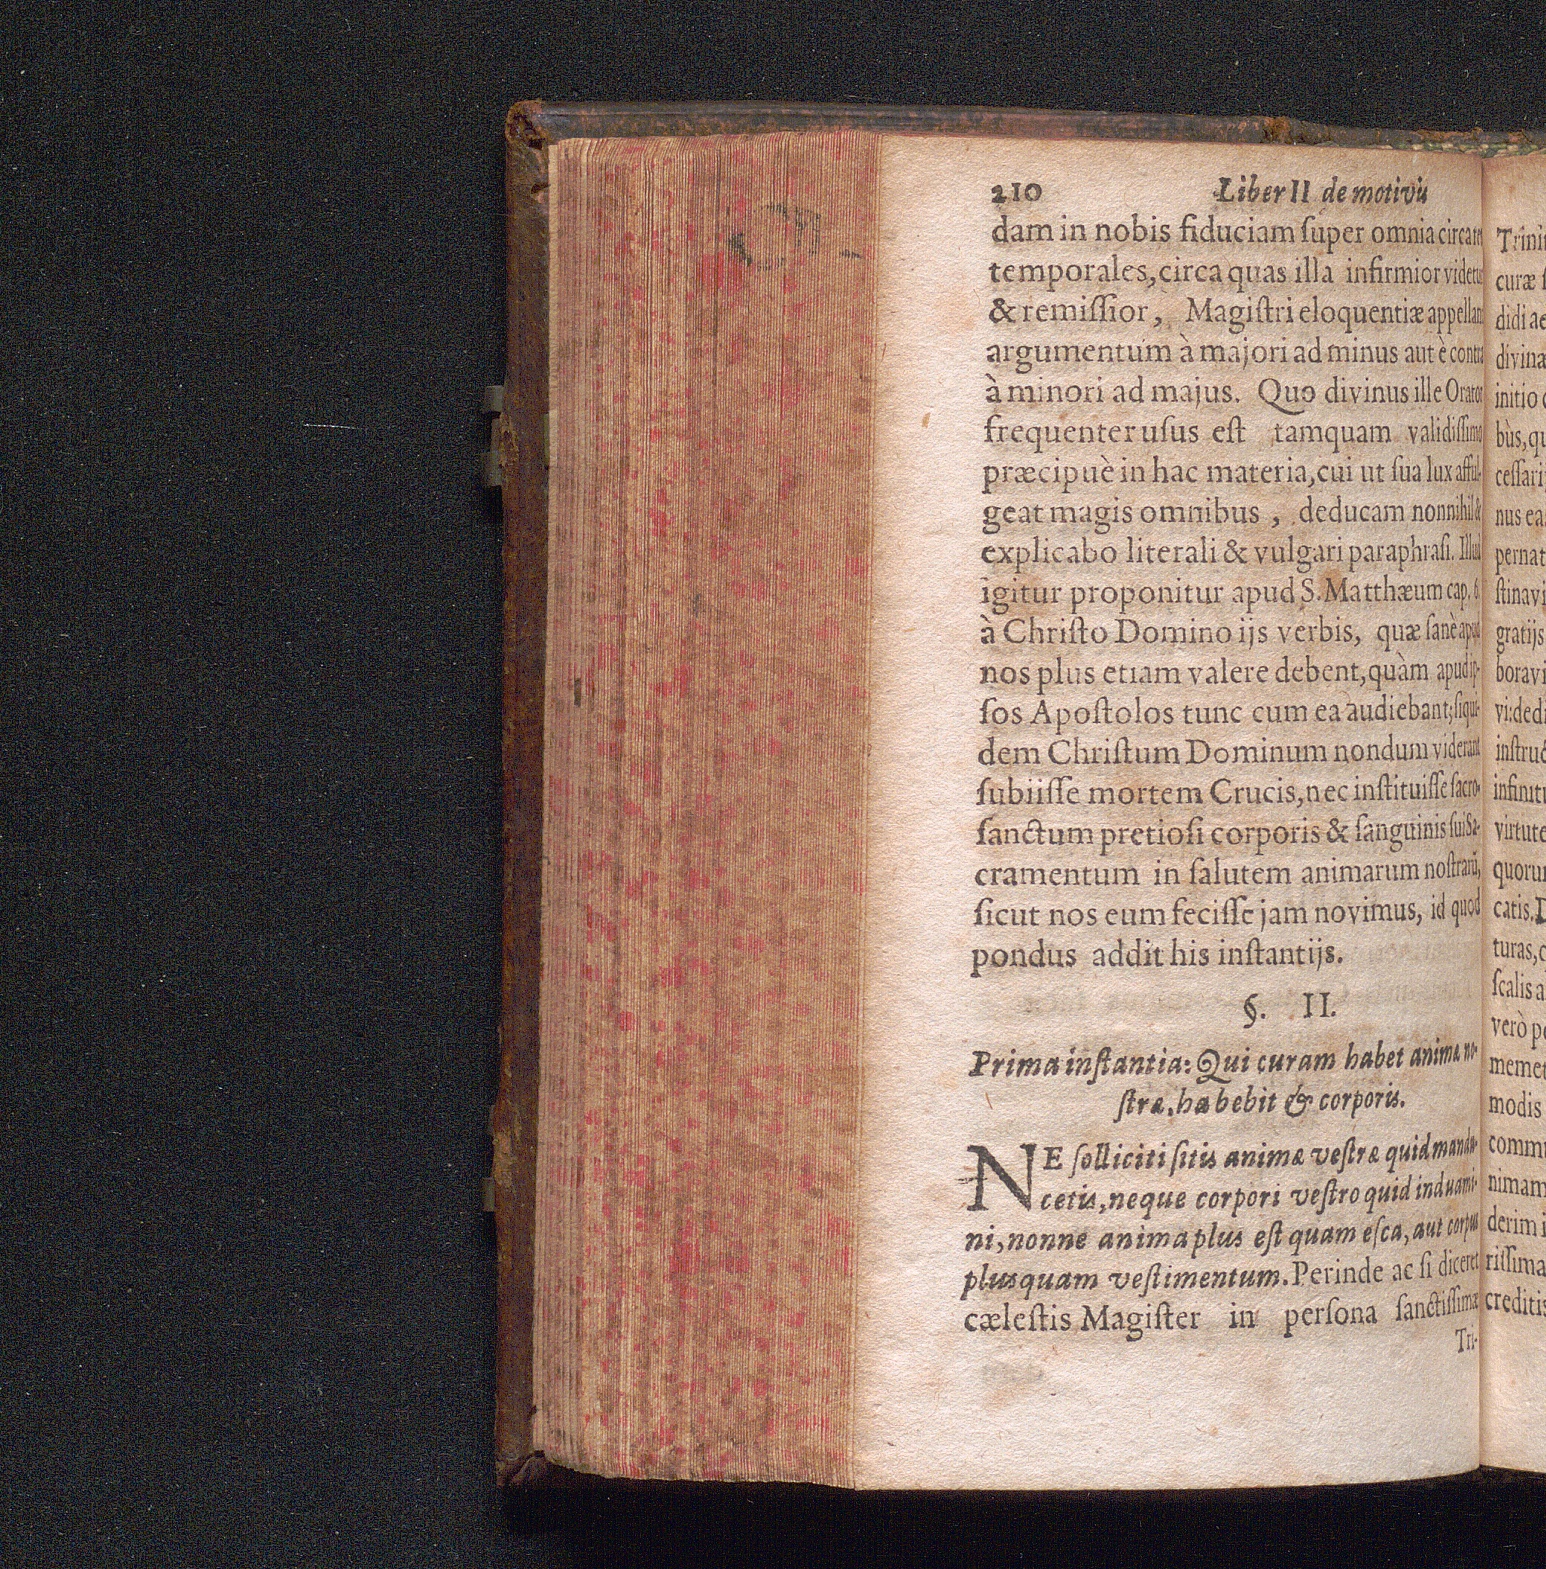 210 Liber II de motivis
dam in nobis fiduciam ſuper omnia circa res
temporales, circa quas illa infirmior videtur
& remiſſior, Magiſtri eloquentiæ appellant
argumentum à majori ad minus aut è contra
à minori ad majus. Quo divinus ille Orator
frequenter uſus eſt tamquam validiſſimo
præcipuè in hac materia, cui ut ſua lux afful-
geat magis omnibus, deducam nonnihil &
explicabo literali & vulgari paraphraſi. Illud
igitur proponitur apud S. Matthæum cap. 6
à Chriſto Domino ijs verbis, quæ ſanè apud
nos plus etiam valere debent, quàm apud ip-
ſos Apoſtolos tunc cum ea audiebant; ſiqui-
dem Chriſtum Dominum nondum viderant
ſubiiſſe mortem Crucis, nec inſtituiſſe ſacro-
ſanctum pretioſi corporis & ſanguinis ſui Sa-
cramentum in ſalutem animarum noſtrarũ,
ſicut nos eum feciſſe jam novimus, id quod
pondus addit his inſtantijs.
§. II.
Prima inſtantia: Qui curam habet animæ no-
ſtræ, habebit & corporis.
NE ſolliciti ſitis animæ veſtræ quid mandu-
cetis, neque corpori veſtro quid induami-
ni, nonne anima plus eſt quam eſca, aut corpus
plus quam veſtimentum. Perinde ac ſi diceret
cæleſtis Magiſter in perſona ſanctiſſimæ
Tri-
curæ
didi
initio
bùs,
nus
gratijs
catis.
turas,
ſcalis
verò
modis
creditis